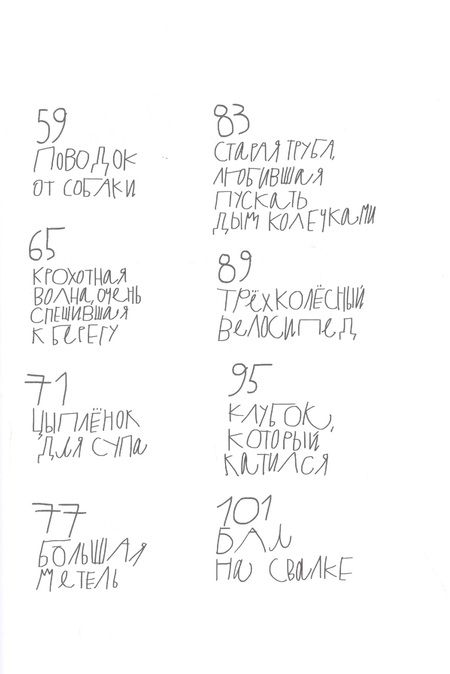 59
ПОВОДОК
ОТ СОБАКИ
65
КРОХОТНАЯ
ВОЛНА, ОЧЕНЬ
СПЕШИВШАЯ
К БЕРЕГУ
71
ЦЫПЛЁНОК
ДЛЯ СУПА
77
БОЛЬШАЯ
МЕТЕЛЬ
83
СТАРАЯ ТРУБА,
ЛЮБИВШАЯ
ПУСКАТЬ
ДЫМ КОЛЕЧКАМИ
89
ТРЁХКОЛЁСНЫЙ
ВЕЛОСИПЕД
95
КЛУБОК,
КОТОРЫЙ
КАТИЛСЯ
101
БАЛ
НА СВАЛКЕ